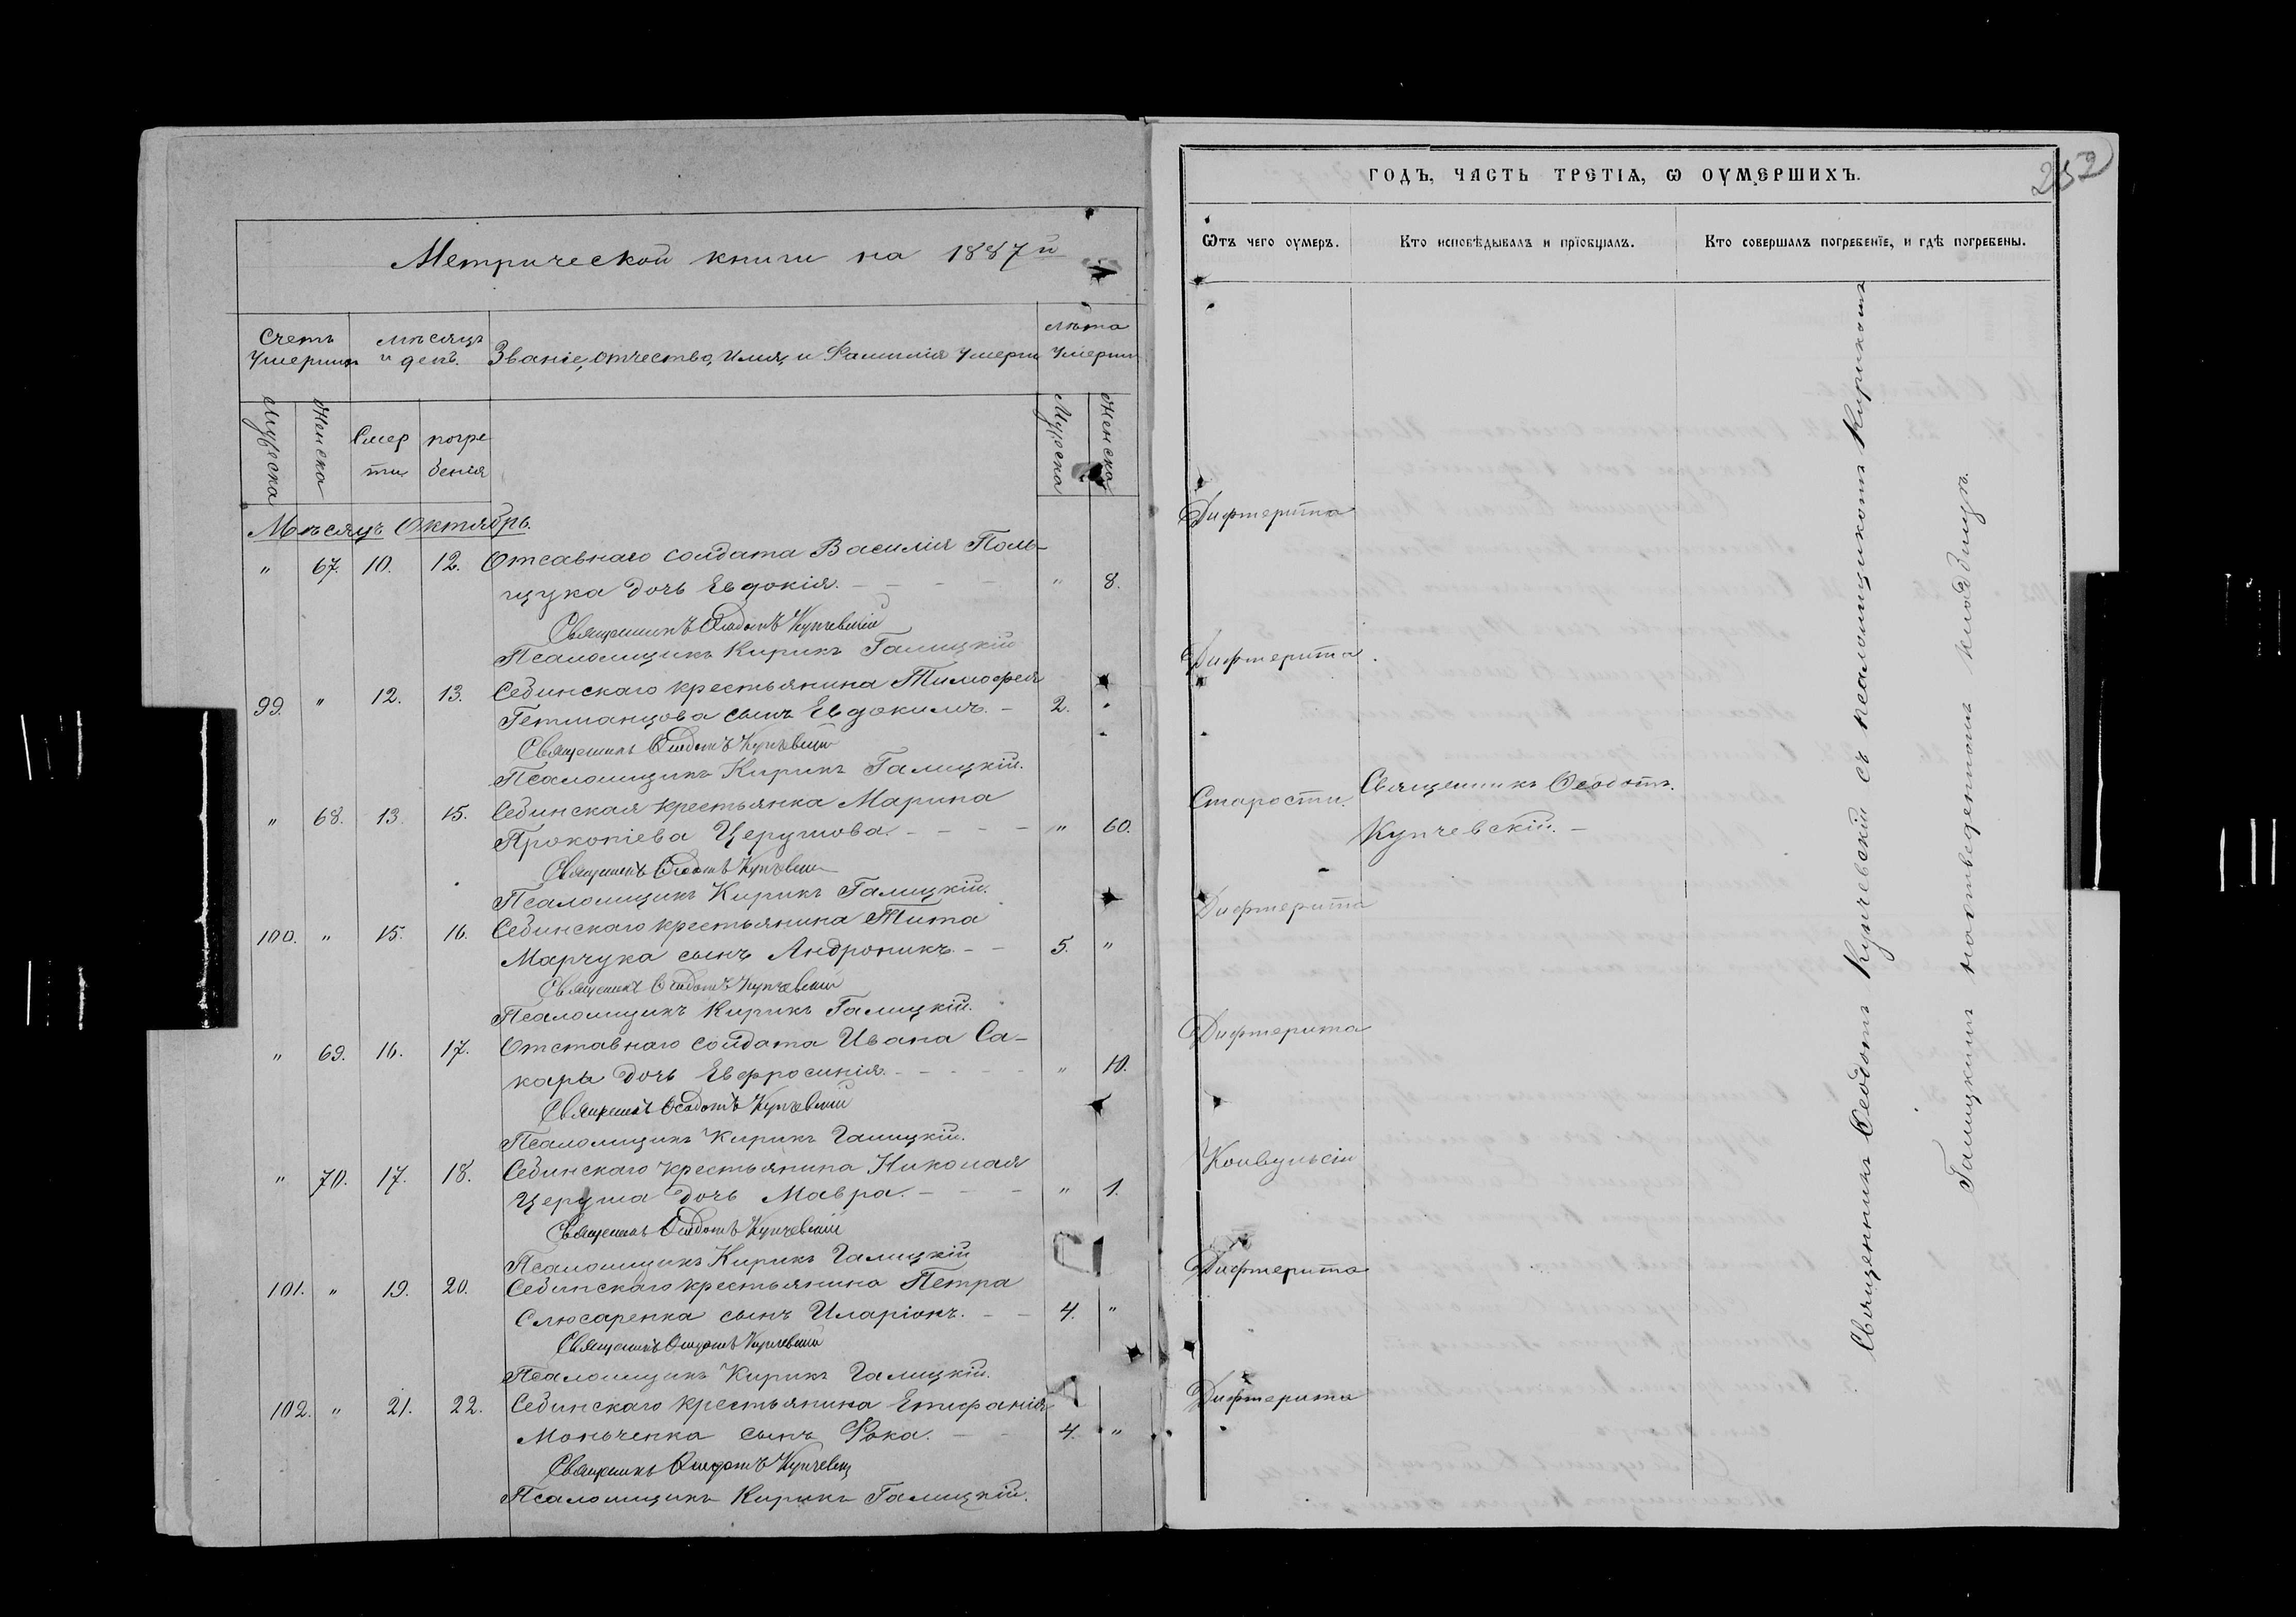 Метрической книги на 1887 й
ГОДЪ, ЧАСТЬ ТРЕТІѦ, Ѡ ОУМЕРШИХЪ.
252
Счетъ Умершихъ
мѣсяцъ и день.
Званіе, отчество, имя, и Фамилія Умерш
лѣта Умерши
Мужеска
Женска
Смер
ти
погре
бенія
Мужеска
Женска
Ѿтъ чего оумеръ.
Кто исповѣдывалъ и прїобщалъ.
Кто совершалъ погребенїе, и гдѣ погребены.
Мѣсяцъ Октябрь.
" 67. 10. 12. Отсавнаго солдата Василія Поли-
щука дочь Евдокія. - - - - " 8.
Дифтерита
Священникъ Ѳеодотъ Купчевскій
Псаломщикъ Кирикъ Галицкій
99. " 12. 13. Себинскаго крестьянина Тимофея
Гетманцова сынъ Евдокимъ. - 2. "
Дифтерита.
Священникъ Ѳеодотъ Купчевскій
Псаломщикъ Кирикъ Галицкій.
" 68. 13. 15. Себинская крестьянка Марина
Прокопіева Церушова. - - - - " 60.
Старости.
Священникъ Ѳеодотъ
Купчевскій. -
Священникъ Ѳеодотъ Купчевскій
Псаломщикъ Кирикъ Галицкій.
100. " 15. 16. Себинскаго крестьянина Тита
Марчука сынъ Андроникъ. - - 5. "
Дифтерита
Священникъ Ѳеодотъ Купчевскій
Псаломщикъ Кирикъ Галицкій.
" 69. 16. 17. Отставнаго солдата Ивана Са-
кары дочь Евфросинія. - - - - " 10.
Дифтерита
Священникъ Ѳеодотъ Купчевскій
Псаломщикъ Кирикъ Галицкій.
" 70. 17. 18. Себинскаго крестьянина Николая
Церуша дочь Мавра. - - - " 1.
Конвульсіи
Священникъ Ѳеодотъ Купчевскій
Псаломщикъ Кирикъ Галицкій
101. " 19. 20. Себинскаго крестьянина Петра
Слюсаренка сынъ Иларіонъ. - - 4. "
Дифтерита
Священникъ Ѳеодотъ Купчевскій
Псаломщикъ Кирикъ Галицкій.
102. " 21. 22. Себинскаго крестьянина Епифанія
Моньченка сынъ Фока. - - 4. "
Дифтерита
Священникъ Ѳеодотъ Купчевскій
Псаломщикъ Кирикъ Галицкій.
Священникъ Ѳеодотъ Купчевскій съ псаломщикомъ Кирикомъ
Галицкимъ на отведенномъ кладбищѣ.